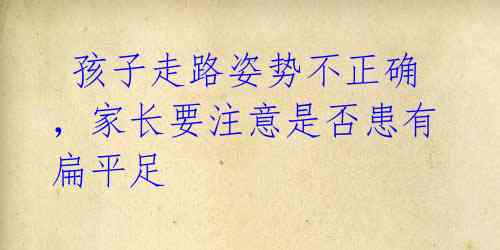 孩子走路姿势不正确
，家长要注意是否患有
扁平足